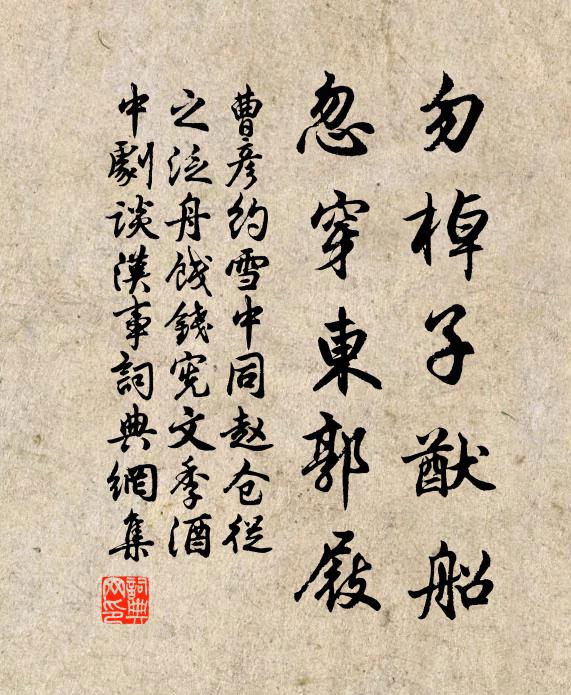 勿棹子猷船
忽穿東郭屐
曹彥約雪中同赵仓從
之泛舟餞錢宪文季酒
中劇談漢事詞典網集
詞典